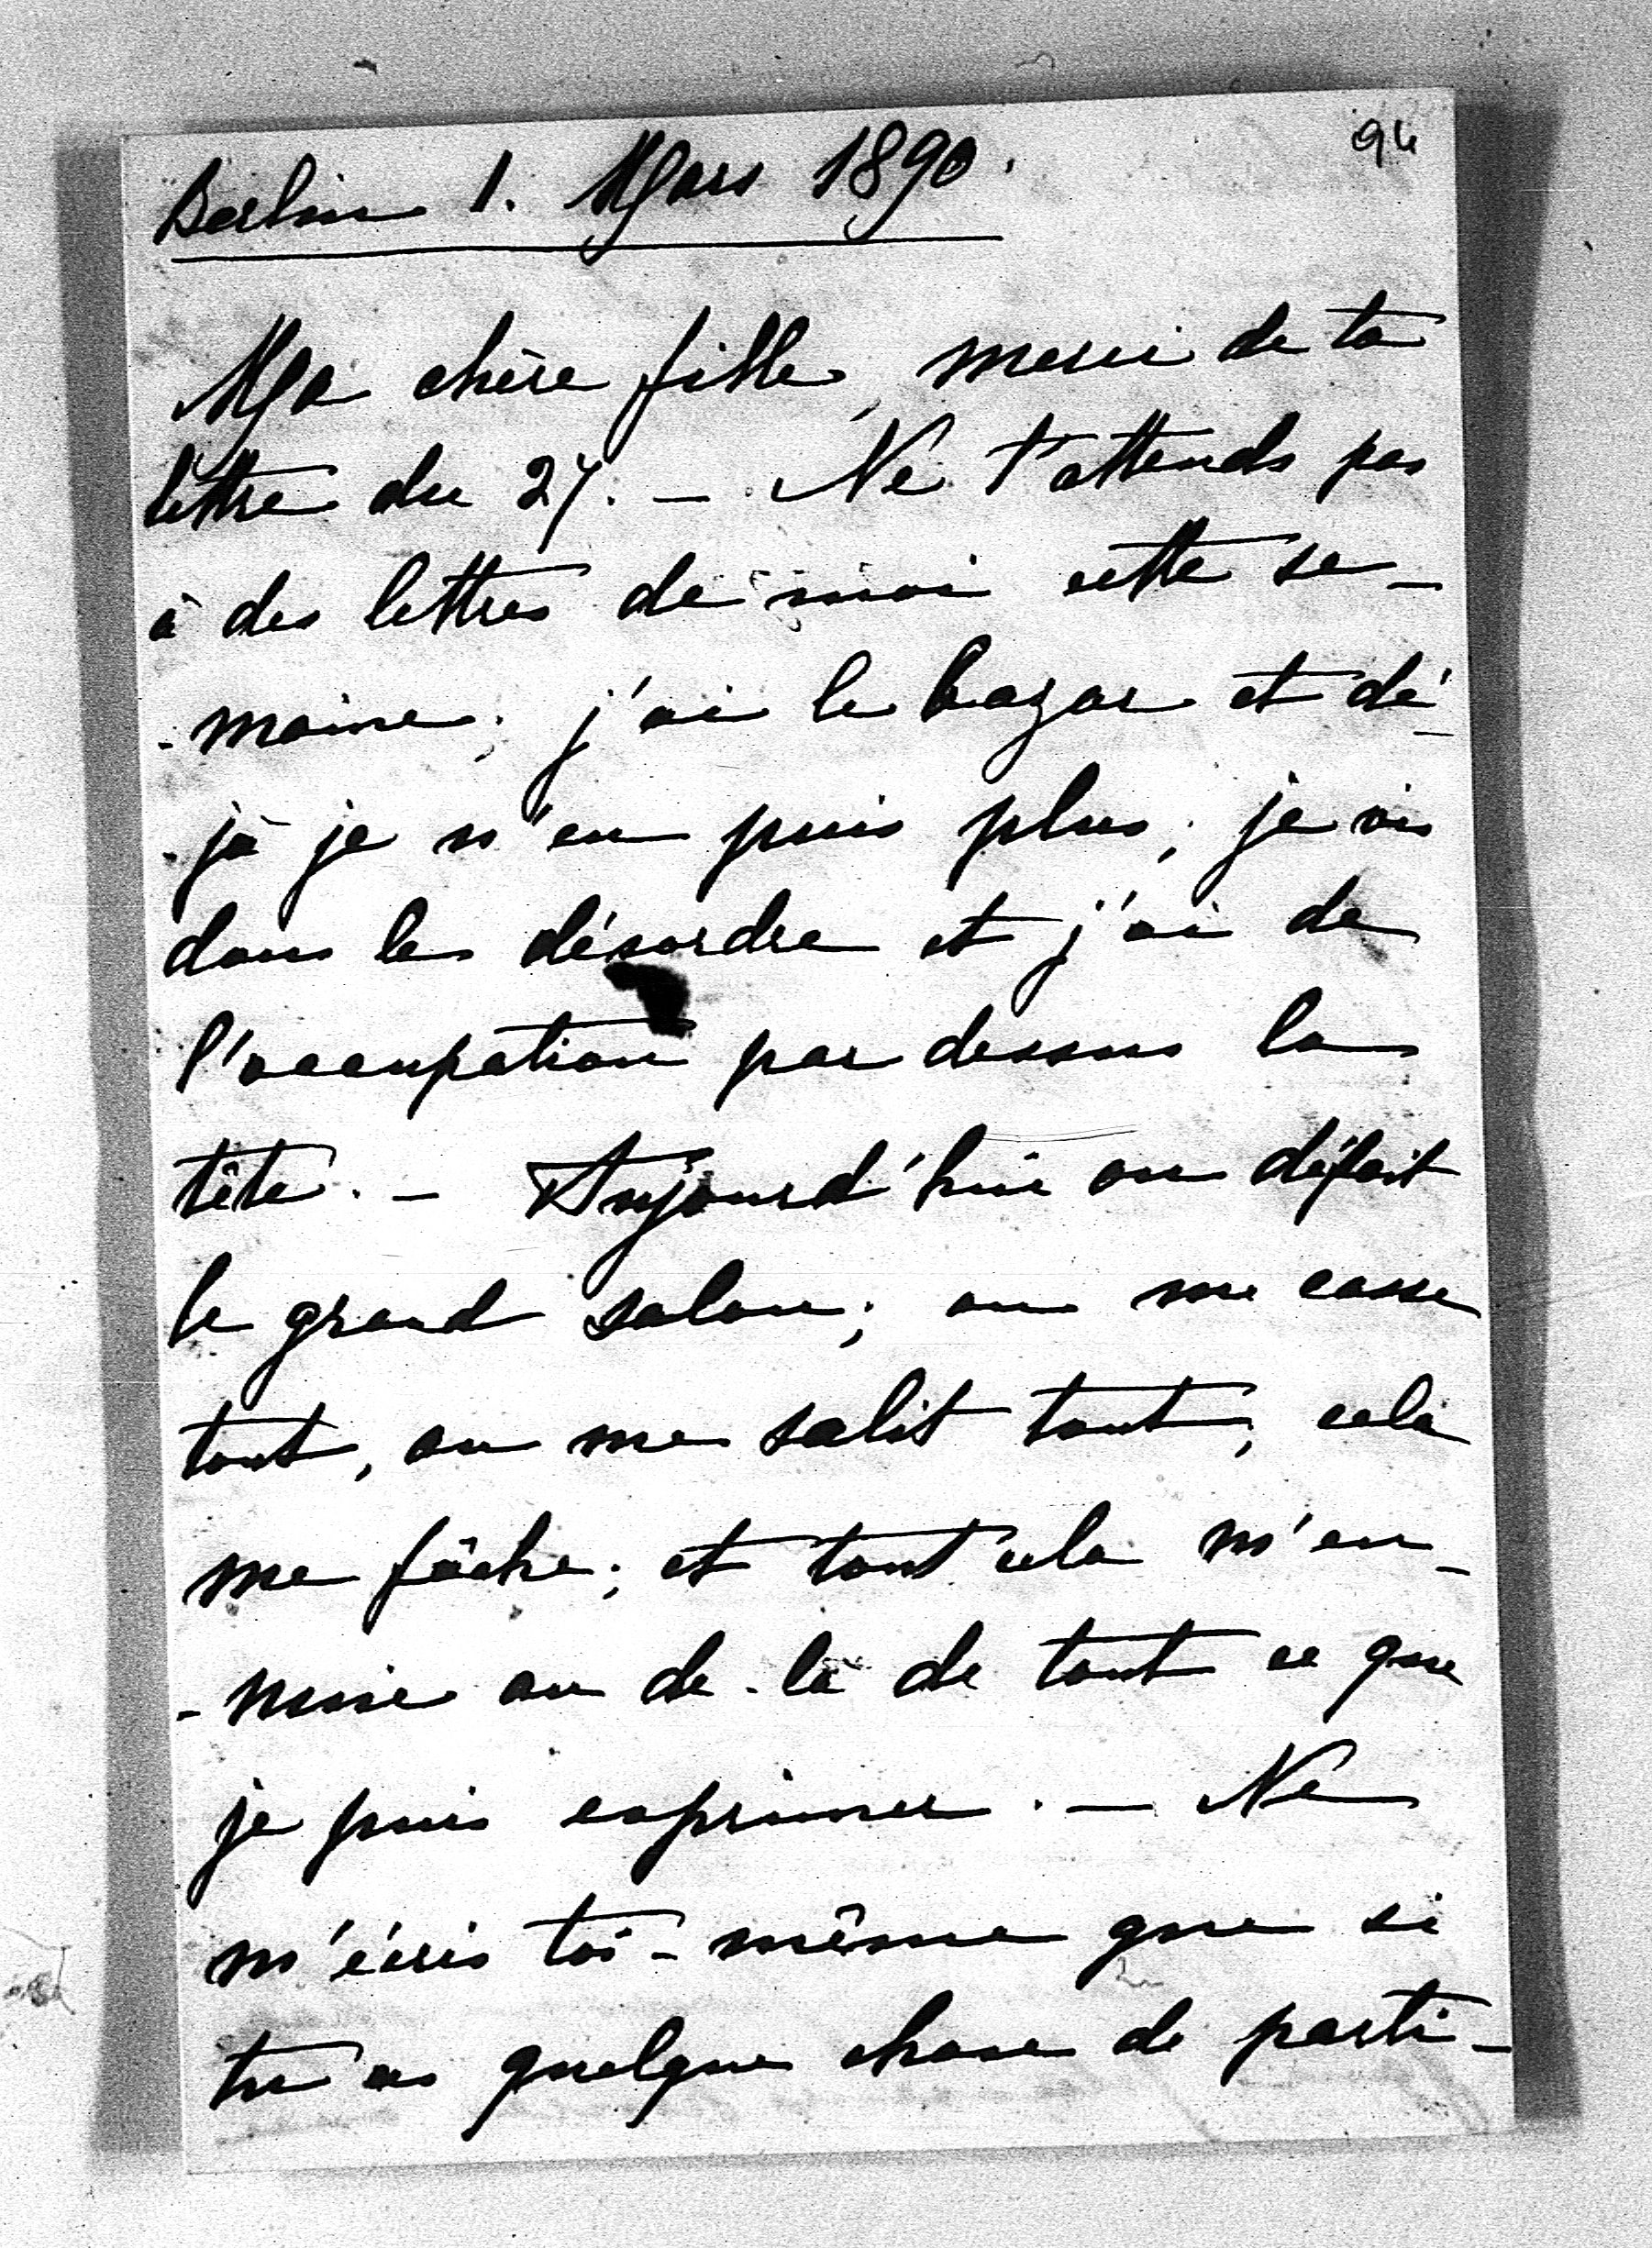 94
Berlin 1. Mars 1890.
Ma chère fille, merci de ta
lettre du 27. — Ne t'attends pas
à des lettres de moi cette se-
-maine; j'ai le bazar et dé-
-jà je n'en puis plus; je vis
dans le désordre et j'ai de
l'occupation par dessus la
tête. — Aujourd'hui on défait
le grand salon; on me casse
tout, on me salit tout; cela
me fâche; et tout cela m'en-
-nuie au de-là de tout ce que
je puis exprimer. — Ne
m'écris toi-même que si
tu as quelque chose de parti-